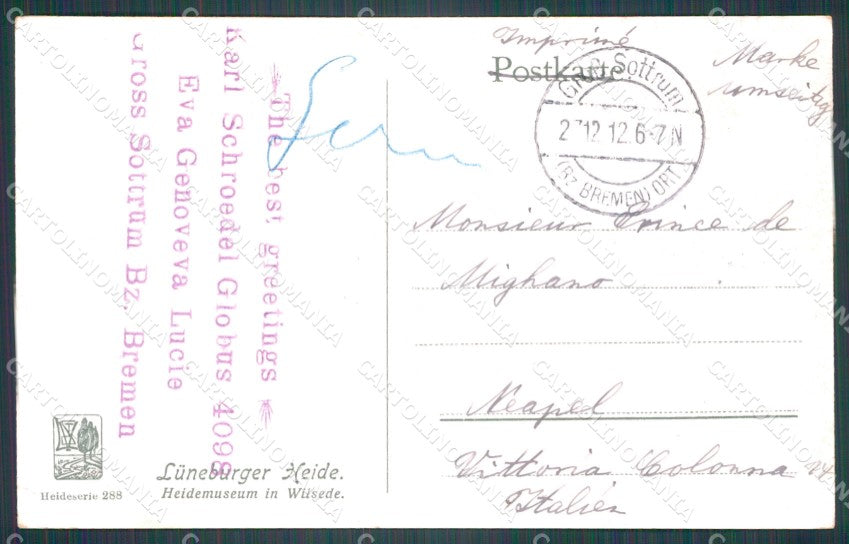 Imprimé
Postkarte
Marke
umseitig
Gross Sottrum
12.12.6-7N
(Bz. BREMEN) ORT
The best greetings
Karl Schroedel Globus 4098
Eva Genoveva Lucie
Gross Sottrum Bz. Bremen
Monsieur Prince de
Mighano
Neapel
Vittoria Colonna
Italien
Lüneburger Heide.
Heidemuseum in Wilsede.
Heideserie 288
CARTOLINOMANIA